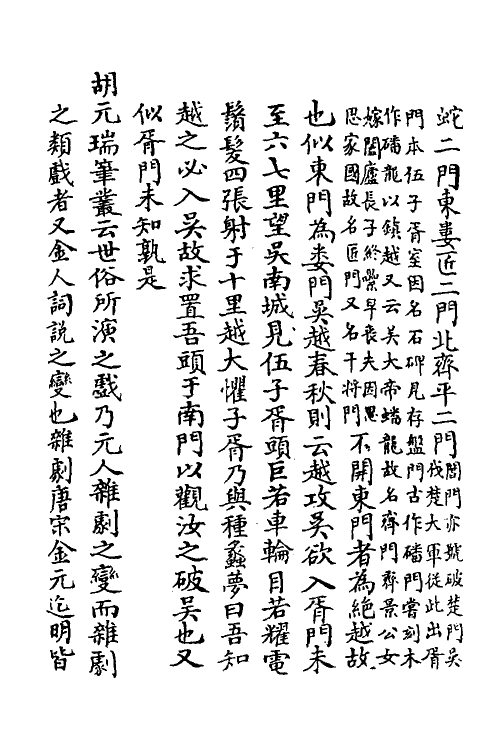 蛇二門東婁匠二門北齊平二門閶門亦號破楚門吳
伐楚大軍從此出胥
門本伍子胥室因名石碑見存盤門古作磻門嘗刻木
作磻龍以鎮越又云吳大帝蟠龍故名齊門齊景公女
嫁闔廬長子終纍早喪夫因思
思家國故名匠門又名干將門
不開東門者為絕越故
也似東門為婁門吳越春秋則云越攻吳欲入胥門未
至六七里望吳南城見伍子胥頭巨若車輪目若耀電
鬚髮四張射于十里越大懼子胥乃與種蠡夢曰吾知
越之必入吳故求置吾頭于南門以觀汝之破吳也又
似胥門未知孰是
胡元瑞筆叢云世俗所演之戲乃元人雜劇之變而雜劇
之類戲者又金人詞說之變也雜劇唐宋金元迄明皆